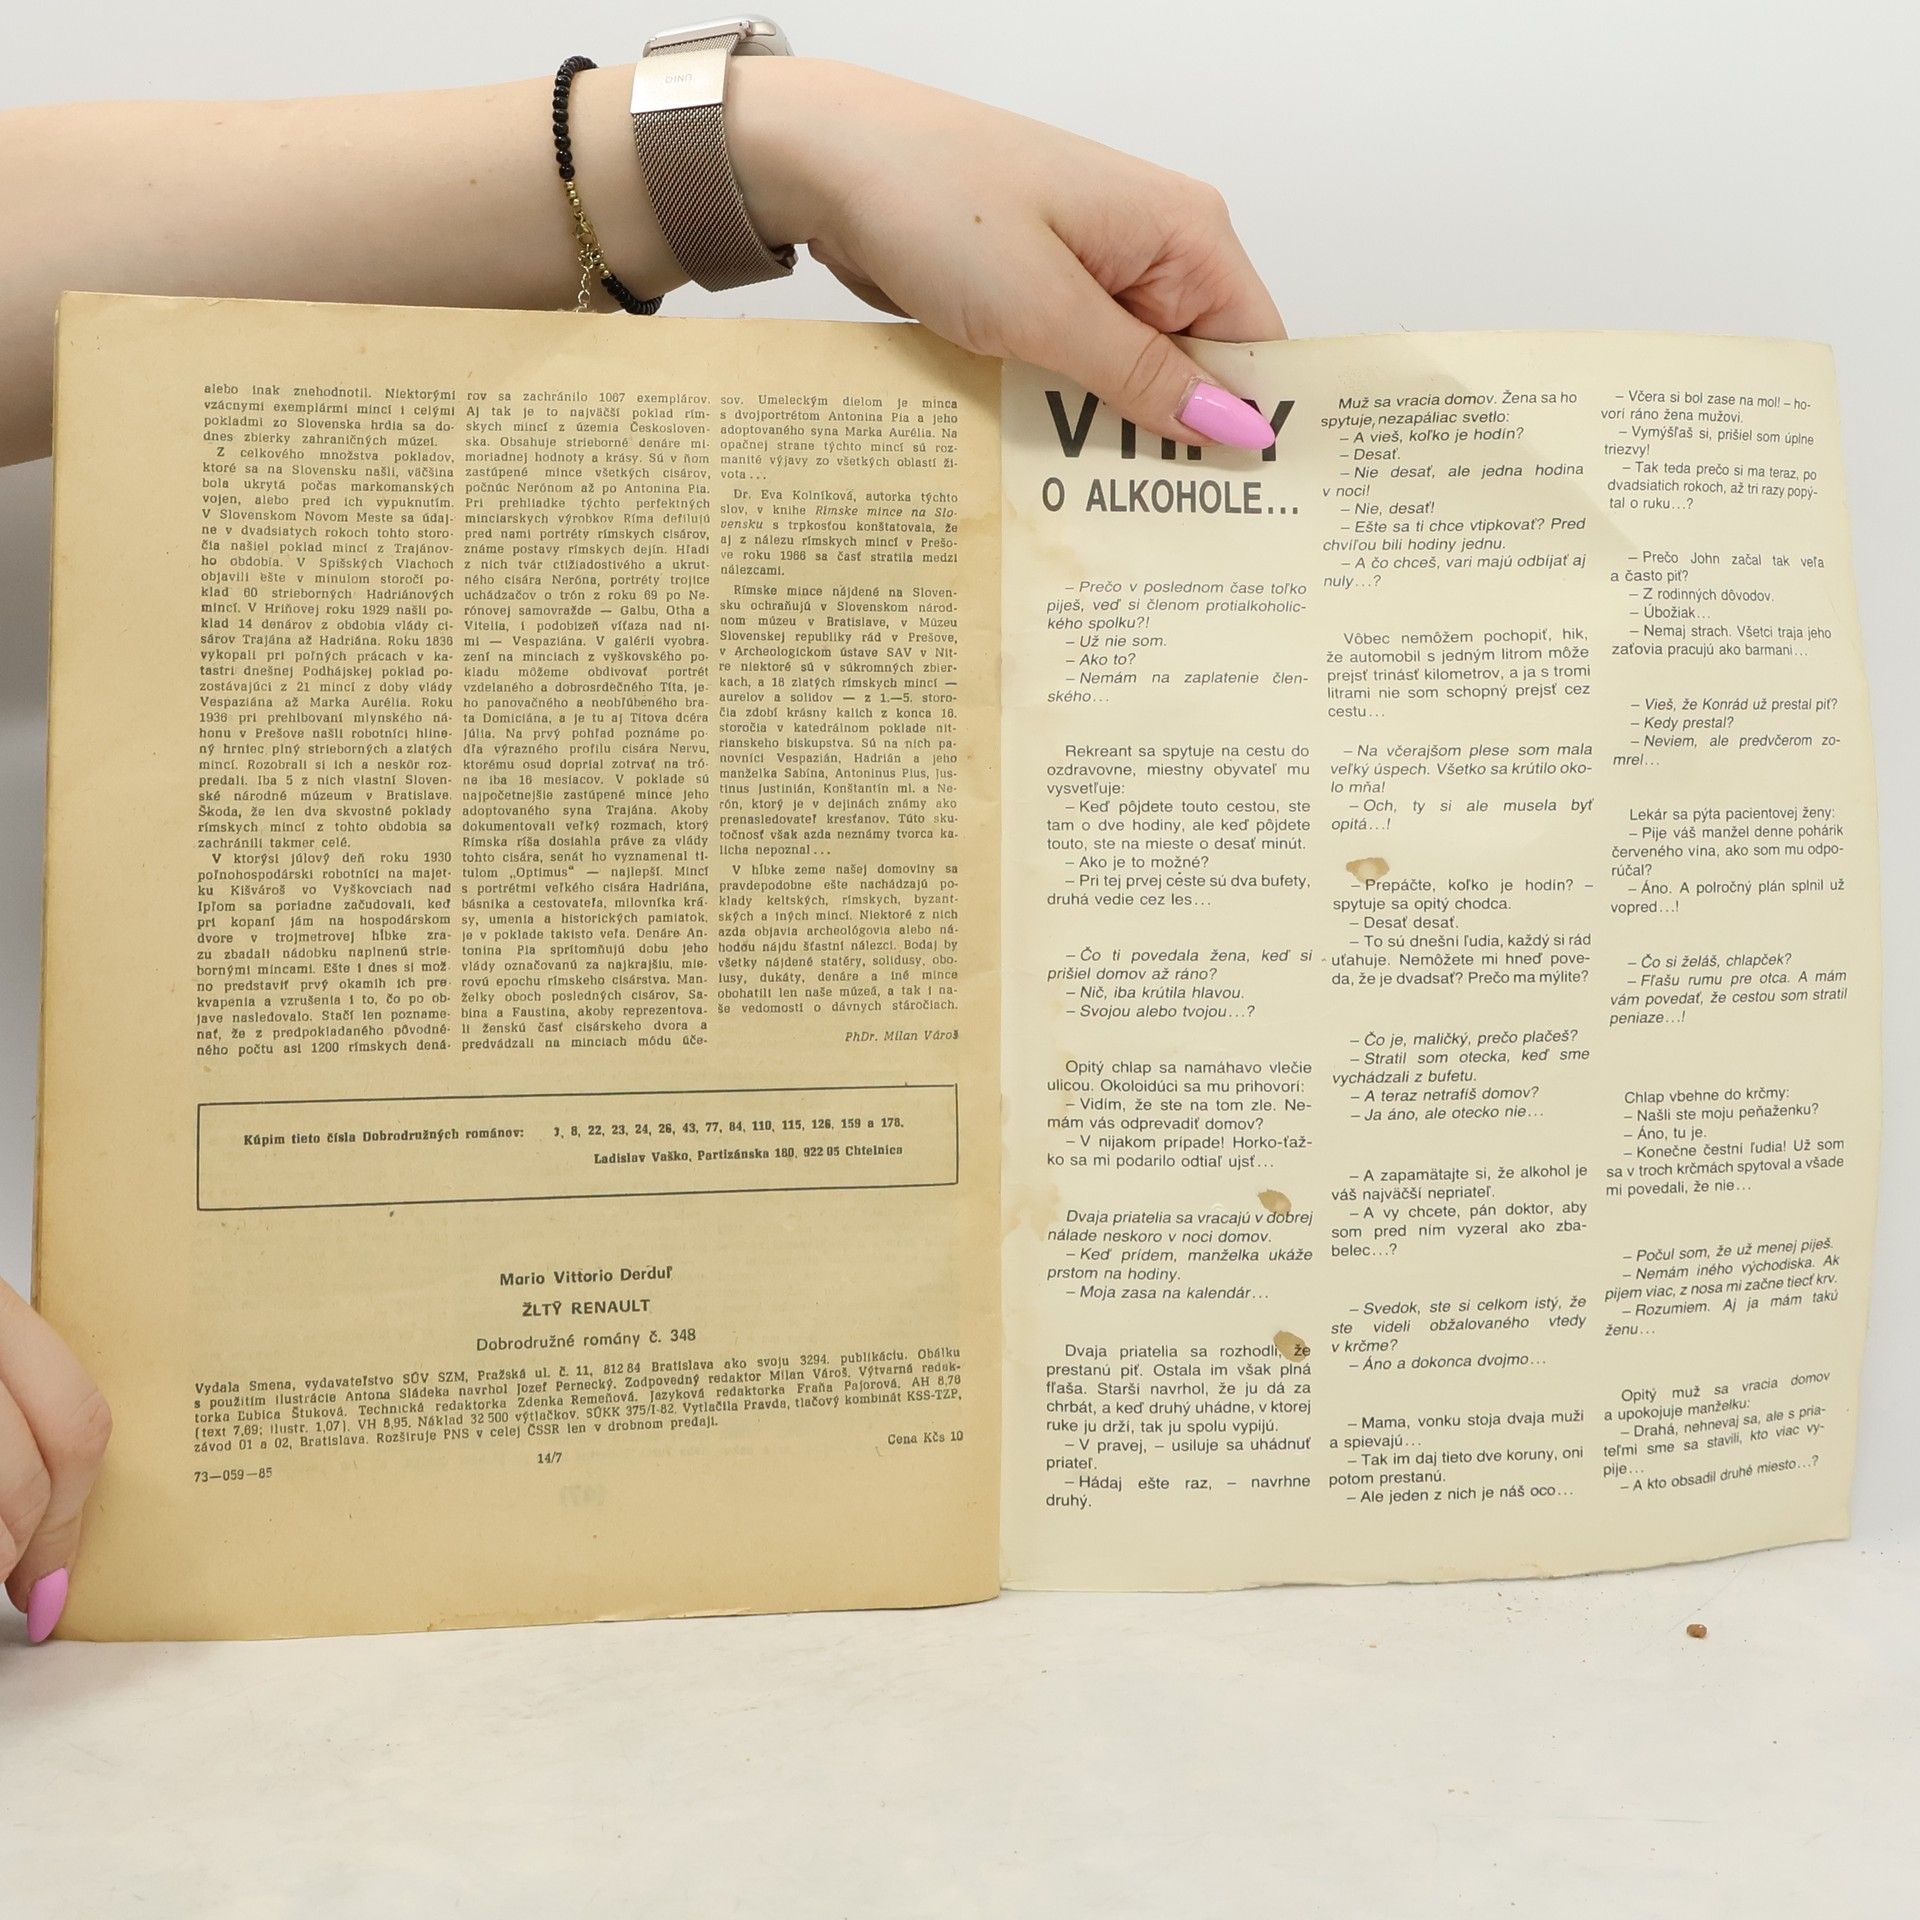 alebo inak znehodnotil. Niektorými
vzácnymi exemplármi mincí i celými
pokladmi zo Slovenska hrdia sa do-
dnes zbierky zahraničných múzeí.
Z celkového množstva pokladov,
ktoré sa na Slovensku našli, väčšina
bola ukrytá počas markomanských
vojen, alebo pred ich vypuknutím.
V Slovenskom Novom Meste sa údaj-
ne v dvadsiatych rokoch tohto storo-
čia našiel poklad mincí z Trajánov-
ho obdobia. V Spišských Vlachoch
objavili ešte v minulom storočí po-
klad 60 strieborných Hadriánových
mincí. V Hriňovej roku 1929 našli po-
klad 14 denárov z obdobia vlády ci-
sárov Trajána až Hadriána. Roku 1836
vykopali pri poľných prácach v ka-
tastri dnešnej Podhájskej poklad po-
zostávajúci z 21 mincí z doby vlády
Vespaziána až Marka Aurélia. Roku
1936 pri prehlbovaní mlynského ná-
honu v Prešove našli robotníci hline-
ný hrniec plný strieborných a zlatých
mincí. Rozobrali si ich a neskôr roz-
predali. Iba 5 z nich vlastní Sloven-
ské národné múzeum v Bratislave.
Škoda, že len dva skvostné poklady
rímskych mincí z tohto obdobia sa
zachránili takmer celé.
V ktorýsi júlový deň roku 1930
poľnohospodárski robotníci na majet-
ku Kišváros vo Vyškovciach nad
Ipľom sa poriadne začudovali, keď
pri kopaní jám na hospodárskom
dvore v trojmetrovej hĺbke zra-
zu zbadali nádobku naplnenú strie-
bornými mincami. Ešte i dnes si mož-
no predstaviť prvý okamih ich pre-
kvapenia a vzrušenia i to, čo po ob-
jave nasledovalo. Stačí len pozname-
nať, že z predpokladaného pôvodné-
ného počtu asi 1200 rímskych dená-
rov sa zachránilo 1067 exemplárov.
Aj tak je to najväčší poklad rím-
skych mincí z územia Českosloven-
ska. Obsahuje strieborné denáre mi-
moriadnej hodnoty a krásy. Sú v ňom
zastúpené mince všetkých cisárov,
počnúc Nerónom až po Antonina Pia.
Pri prehliadke týchto perfektných
minciarskych výrobkov Ríma defilujú
pred nami portréty rímskych cisárov,
známe postavy rímskych dejín. Hľadí
z nich tvár ctižiadostivého a ukrut-
ného cisára Neróna, portréty trojice
uchádzačov o trón z roku 69 po Ne-
rónovej samovražde — Galbu, Otha a
Vitelia, i podobizeň víťaza nad ni-
mi — Vespaziána. V galérii vyobra-
zení na minciach z vyškovského po-
kladu môžeme obdivovať portrét
vzdelaného a dobrosrdečného Títa, je-
ho panovačného a neobľúbeného bra-
ta Domiciána, a je tu aj Títova dcéra
Júlia. Na prvý pohľad poznáme po-
dľa výrazného profilu cisára Nervu,
ktorému osud doprial zotrvať na tró-
ne iba 16 mesiacov. V poklade sú
najpočetnejšie zastúpené mince jeho
adoptovaného syna Trajána. Akoby
dokumentovali veľký rozmach, ktorý
Rímska ríša dosiahla práve za vlády
tohto cisára, senát ho vyznamenal ti-
tulom „Optimus“ — najlepší. Mincí
s portrétmi veľkého cisára Hadriána,
básnika a cestovateľa, milovníka krá-
sy, umenia a historických pamiatok,
je v poklade takisto veľa. Denáre An-
tonina Pia sprítomňujú dobu jeho
vlády označovanú za najkrajšiu, mie-
rovú epochu rímskeho cisárstva. Man-
želky oboch posledných cisárov, Sa-
bina a Faustina, akoby reprezentova-
li ženskú časť cisárskeho dvora a
predvádzali na minciach módu úče-
sov. Umeleckým dielom je minca
s dvojportrétom Antonina Pia a jeho
adoptovaného syna Marka Aurélia. Na
opačnej strane týchto mincí sú roz-
manité výjavy zo všetkých oblastí ži-
vota...
Dr. Eva Kolníková, autorka týchto
slov, v knihe Rímske mince na Slo-
vensku s trpkosťou konštatovala, že
aj z nálezu rímskych mincí v Prešo-
ve roku 1966 sa časť stratila medzi
nálezcami.
Rímske mince nájdené na Sloven-
sku ochraňujú v Slovenskom národ-
nom múzeu v Bratislave, v Múzeu
Slovenskej republiky rád v Prešove,
v Archeologickom ústave SAV v Nit-
re niektoré sú v súkromných zbier-
kach, a 18 zlatých rímskych mincí —
aurelov a solidov — z 1.—5. storo-
čia zdobí krásny kalich z konca 16.
storočia v katedrálnom poklade nit-
rianskeho biskupstva. Sú na nich pa-
novníci Vespazián, Hadrián a jeho
manželka Sabina, Antoninus Pius, Jus-
tinus Justinián, Konštantín ml. a Ne-
rón, ktorý je v dejinách známy ako
prenasledovateľ kresťanov. Túto sku-
točnosť však azda neznámy tvorca ka-
licha nepoznal...
V hĺbke zeme našej domoviny sa
pravdepodobne ešte nachádzajú po-
klady keltských, rímskych, byzant-
ských a iných mincí. Niektoré z nich
azda objavia archeológovia alebo ná-
hodou nájdu šťastní nálezci. Bodaj by
všetky nájdené statéry, solidusy, obo-
lusy, dukáty, denáre a iné mince
obohatili len naše múzeá, a tak i na-
še vedomosti o dávnych stáročiach.
PhDr. Milan Vároš
Kúpim tieto čísla Dobrodružných románov: 3, 8, 22, 23, 24, 26, 43, 77, 84, 110, 115, 126, 159 a 178.
Ladislav Vaško, Partizánska 180, 922 05 Chtelnica
Mario Vittorio Derduľ
ŽLTÝ RENAULT
Dobrodružné romány č. 348
Vydala Smena, vydavateľstvo SÚV SZM, Pražská ul. č. 11, 812 84 Bratislava ako svoju 3294. publikáciu. Obálku
s použitím ilustrácie Antona Sládeka navrhol Jozef Pernecký. Zodpovedný redaktor Milan Vároš. Výtvarná redak-
torka Ľubica Štuková. Technická redaktorka Zdenka Remeňová. Jazyková redaktorka Fraňa Pajorová. AH 8,76
(text 7,69; ilustr. 1,07). VH 8,95. Náklad 32 500 výtlačkov. SÚKK 375/I-82. Vytlačila Pravda, tlačový kombinát KSS-TZP,
závod 01 a 02, Bratislava. Rozširuje PNS v celej ČSSR len v drobnom predaji.
Cena Kčs 10
14/7
73—059—85
O ALKOHOLE...
– Prečo v poslednom čase toľko
piješ, veď si členom protialkoholic-
kého spolku?!
– Už nie som.
– Ako to?
– Nemám na zaplatenie člen-
ského...
Rekreant sa spytuje na cestu do
ozdravovne, miestny obyvateľ mu
vysvetľuje:
– Keď pôjdete touto cestou, ste
tam o dve hodiny, ale keď pôjdete
touto, ste na mieste o desať minút.
– Ako je to možné?
– Pri tej prvej ceste sú dva bufety,
druhá vedie cez les...
– Čo ti povedala žena, keď si
prišiel domov až ráno?
– Nič, iba krútila hlavou.
– Svojou alebo tvojou...?
Opitý chlap sa namáhavo vlečie
ulicou. Okoloidúci sa mu prihovorí:
– Vidím, že ste na tom zle. Ne-
mám vás odprevadiť domov?
– V nijakom prípade! Horko-ťaž-
ko sa mi podarilo odtiaľ ujsť...
Dvaja priatelia sa vracajú v dobrej
nálade neskoro v noci domov.
– Keď prídem, manželka ukáže
prstom na hodiny.
– Moja zasa na kalendár...
Dvaja priatelia sa rozhodli, že
prestanú piť. Ostala im však plná
fľaša. Starší navrhol, že ju dá za
chrbát, a keď druhý uhádne, v ktorej
ruke ju drží, tak ju spolu vypijú.
– V pravej, – usiluje sa uhádnuť
priateľ.
– Hádaj ešte raz, – navrhne
druhý.
Muž sa vracia domov. Žena sa ho
spytuje, nezapáliac svetlo:
– A vieš, koľko je hodín?
– Desať.
– Nie desať, ale jedna hodina
v noci!
– Nie, desať!
– Ešte sa ti chce vtipkovať? Pred
chvíľou bili hodiny jednu.
– A čo chceš, vari majú odbíjať aj
nuly...?
Vôbec nemôžem pochopiť, hik,
že automobil s jedným litrom môže
prejsť trinásť kilometrov, a ja s tromi
litrami nie som schopný prejsť cez
cestu...
– Na včerajšom plese som mala
veľký úspech. Všetko sa krútilo oko-
lo mňa!
– Och, ty si ale musela byť
opitá...!
– Prepáčte, koľko je hodín? –
spytuje sa opitý chodca.
– Desať desať.
– To sú dnešní ľudia, každý si rád
uťahuje. Nemôžete mi hneď pove-
da, že je dvadsať? Prečo ma mýlite?
– Čo je, maličký, prečo plačeš?
– Stratil som otecka, keď sme
vychádzali z bufetu.
– A teraz netrafíš domov?
– Ja áno, ale otecko nie...
– A zapamätajte si, že alkohol je
váš najväčší nepriateľ.
– A vy chcete, pán doktor, aby
som pred ním vyzeral ako zba-
belec...?
– Svedok, ste si celkom istý, že
ste videli obžalovaného vtedy
v krčme?
– Áno a dokonca dvojmo...
– Mama, vonku stoja dvaja muži
a spievajú...
– Tak im daj tieto dve koruny, oni
potom prestanú.
– Ale jeden z nich je náš oco...
– Včera si bol zase na mol! – ho-
vorí ráno žena mužovi.
– Vymýšľaš si, prišiel som úplne
triezvy!
– Tak teda prečo si ma teraz, po
dvadsiatich rokoch, až tri razy popý-
tal o ruku...?
– Prečo John začal tak veľa
a často piť?
– Z rodinných dôvodov.
– Úbožiak...
– Nemaj strach. Všetci traja jeho
zaťovia pracujú ako barmani...
– Vieš, že Konrád už prestal piť?
– Kedy prestal?
– Neviem, ale predvčerom zo-
mrel...
Lekár sa pýta pacientovej ženy:
– Pije váš manžel denne pohárik
červeného vína, ako som mu odpo-
rúčal?
– Áno. A polročný plán splnil už
vopred...!
– Čo si želáš, chlapček?
– Fľašu rumu pre otca. A mám
vám povedať, že cestou som stratil
peniaze...!
Chlap vbehne do krčmy:
– Našli ste moju peňaženku?
– Áno, tu je.
– Konečne čestní ľudia! Už som
sa v troch krčmách spytoval a všade
mi povedali, že nie...
– Počul som, že už menej piješ.
– Nemám iného východiska. Ak
pijem viac, z nosa mi začne tiecť krv.
– Rozumiem. Aj ja mám takú
ženu...
Opitý muž sa vracia domov
a upokojuje manželku:
– Drahá, nehnevaj sa, ale s pria-
teľmi sme sa stavili, kto viac vy-
pije...
– A kto obsadil druhé miesto...?